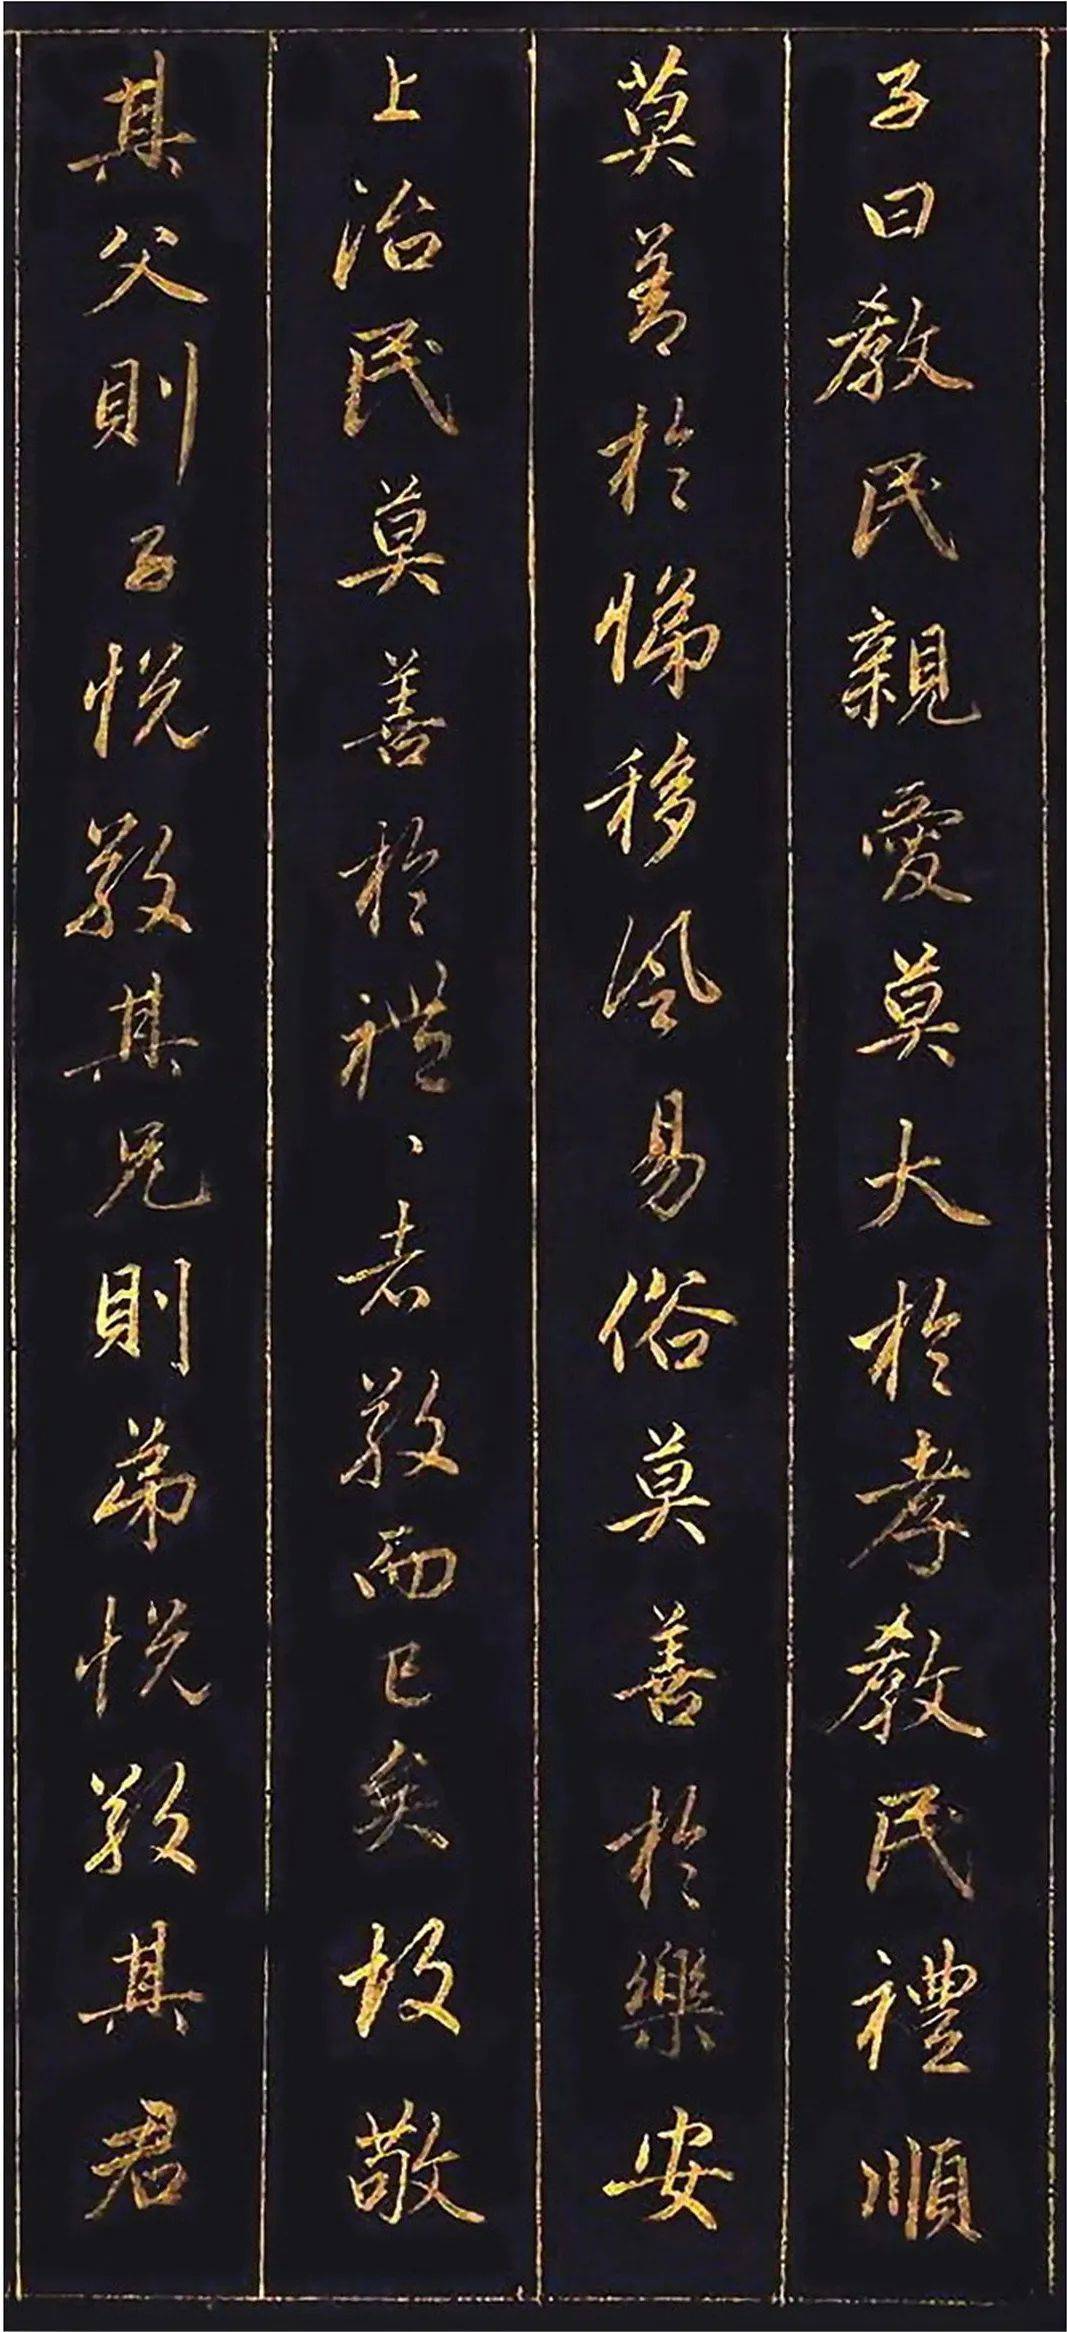 子曰教民親愛莫大於孝教民禮順
莫善於悌移風易俗莫善於樂安
上治民莫善於禮〻者敬而已矣故敬
其父則子悦敬其兄則弟悦敬其君